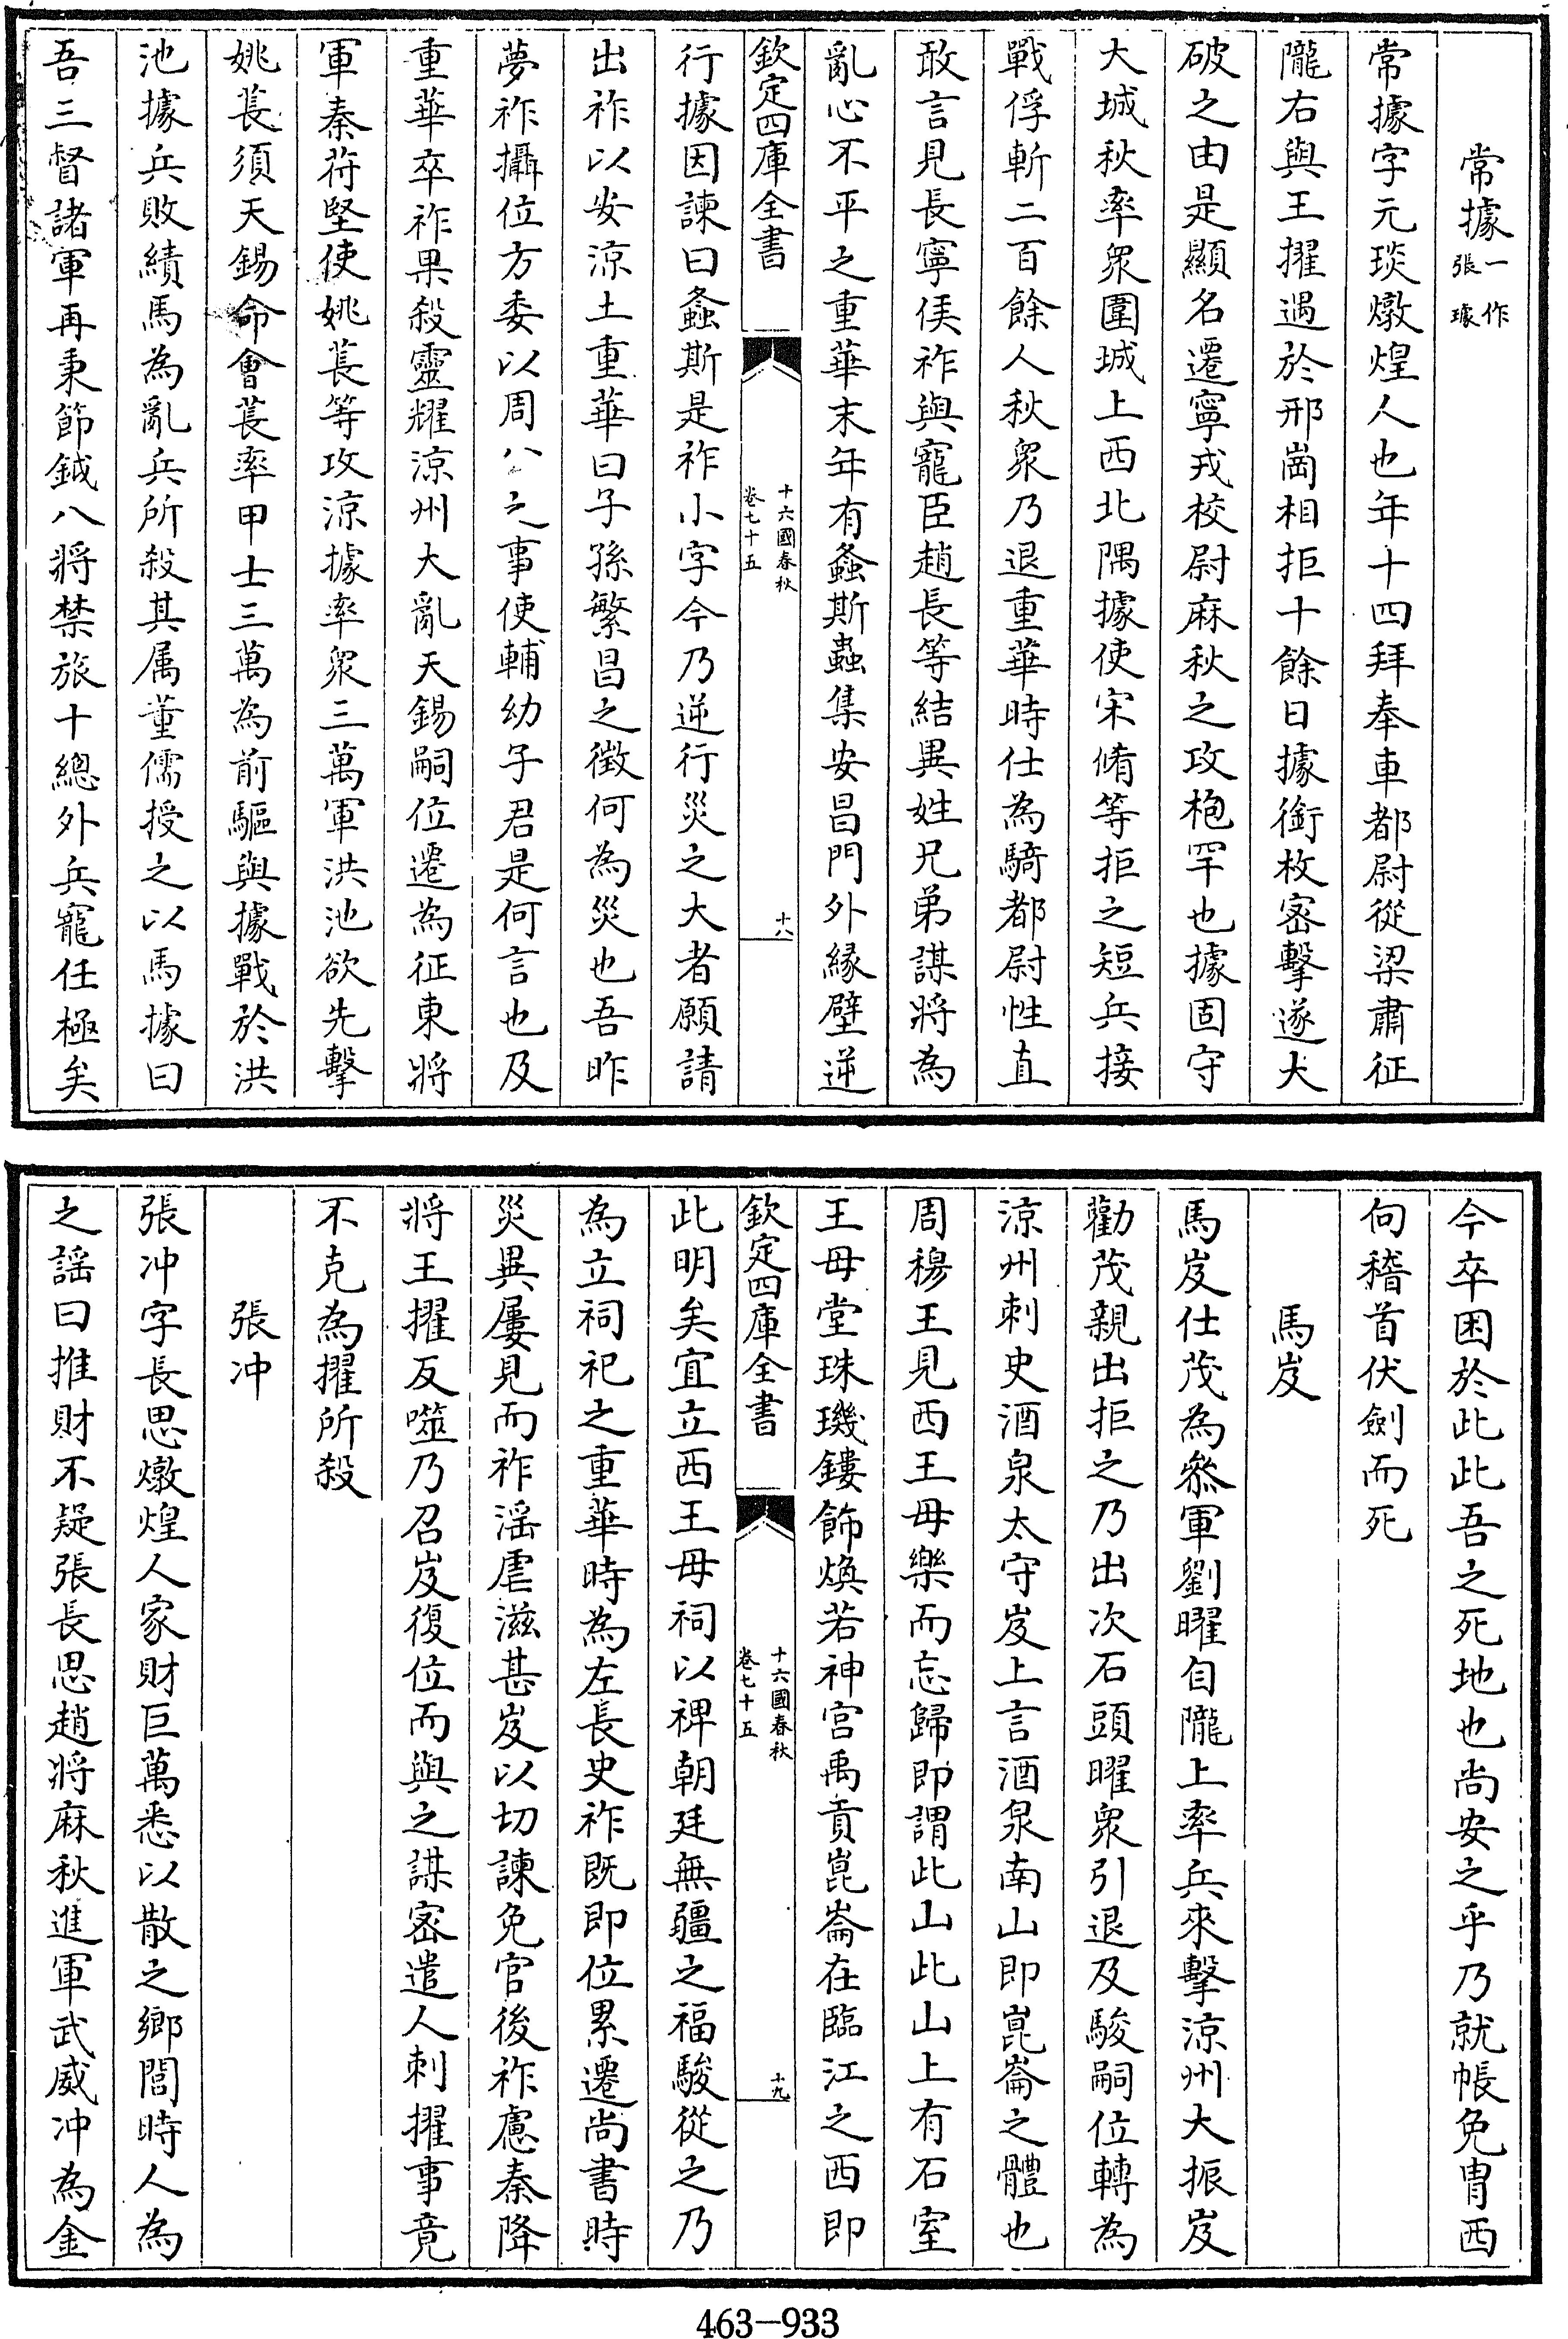 常據一作張璩
常據字元琰燉煌人也年十四拜奉車都尉從梁肅征
隴右與王擢遇於邢崗相拒十餘日據銜枚密擊遂大
破之由是顯名遷寧戎校尉麻秋之攻枹罕也據固守
大城秋率衆圍城上西北隅據使宋脩等拒之短兵接
戰俘斬二百餘人秋衆乃退重華時仕為騎都尉性直
敢言見長寧侯祚與寵臣趙長等結異姓兄弟謀將為
亂心不平之重華末年有螽斯蟲集安昌門外緣壁逆
欽定四庫全書
十六國春秋
卷七十五
十八
行據因諫曰螽斯是祚小字今乃逆行災之大者願請
出祚以安涼土重華曰子孫繁昌之徵何為災也吾昨
夢祚攝位方委以周八之事使輔幼子君是何言也及
重華卒祚果殺靈耀涼州大亂天錫嗣位遷為征東將
軍秦苻堅使姚萇等攻涼據率衆三萬軍洪池欲先擊
姚萇須天錫命會萇率甲士三萬為前驅與據戰於洪
池據兵敗績馬為亂兵所殺其属董儒授之以馬據曰
吾三督諸軍再秉節鉞八將禁旅十總外兵寵任極矣
今卒困於此此吾之死地也尚安之乎乃就帳免冑西
向稽首伏劍而死
馬岌
馬岌仕茂為叅軍劉曜自隴上率兵來擊涼州大振岌
勸茂親出拒之乃出次石頭曜衆引退及駿嗣位轉為
涼州刺史酒泉太守岌上言酒泉南山即崑崙之體也
周穆王見西王母樂而忘歸即謂此山此山上有石室
王母堂珠璣鏤飾煥若神宮禹貢崑崙在臨江之西即
欽定四庫全書
十六國春秋
卷七十五
十九
此明矣宜立西王母祠以裨朝廷無疆之福駿從之乃
為立祠祀之重華時為左長史祚既即位累遷尚書時
災異屢見而祚淫虐滋甚岌以切諫免官後祚慮秦降
將王擢反噬乃召岌復位而與之謀密遣人刺擢事竟
不克為擢所殺
張冲
張冲字長思燉煌人家財巨萬悉以散之鄉閭時人為
之謡曰推財不疑張長思趙將麻秋進軍武威冲為金
463—933